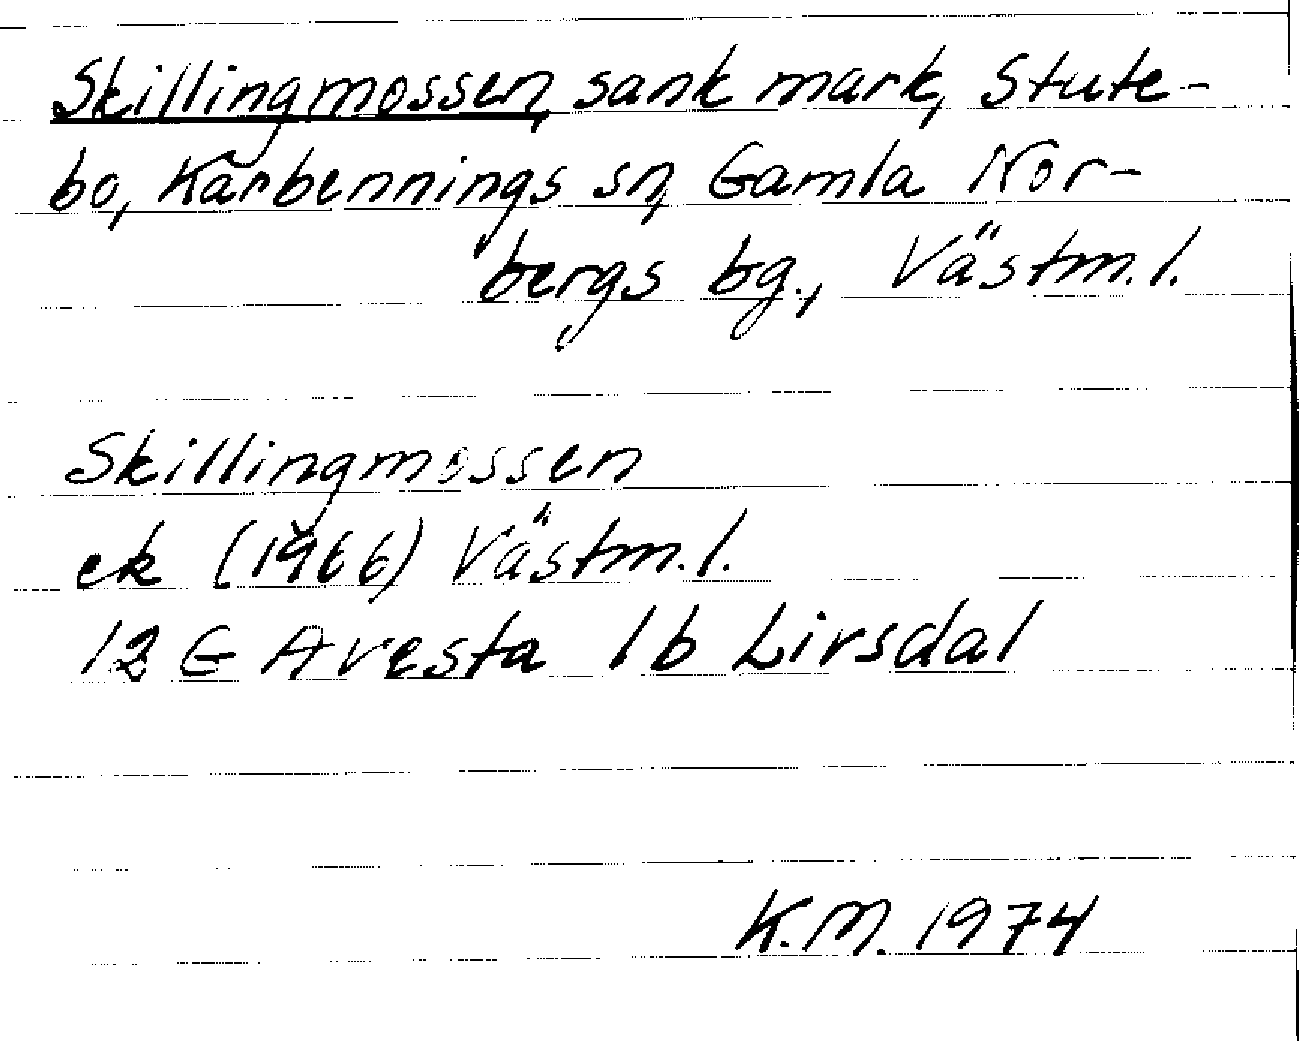 Skillingmossen, sank mark, Stute-
bo, Karbennings sn, Gamla Nor-
bergs bg., Västm.l.
Skillingmossen
ek (1966) Västm.l.
12 G Avesta 1b Lirsdal
K.M. 1974